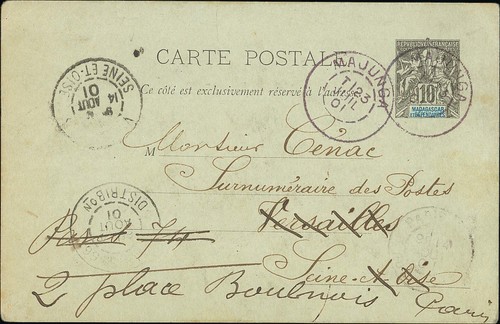 RÉPUBLIQUE FRANÇAISE
CARTE POSTALE
MAJUNGA
23
JUIL
01
10
MADAGASCAR
ET DÉPENDANCES
Ce côté est exclusivement réservé à l'adresse
SEINE-ET-OISE
14
AOUT
01
M Monsieur Cénac
Surnuméraire des Postes
Versailles
DISTRIBON
AOUT
01
PARIS
Seine-et-Oise
2 place Boulnois Paris